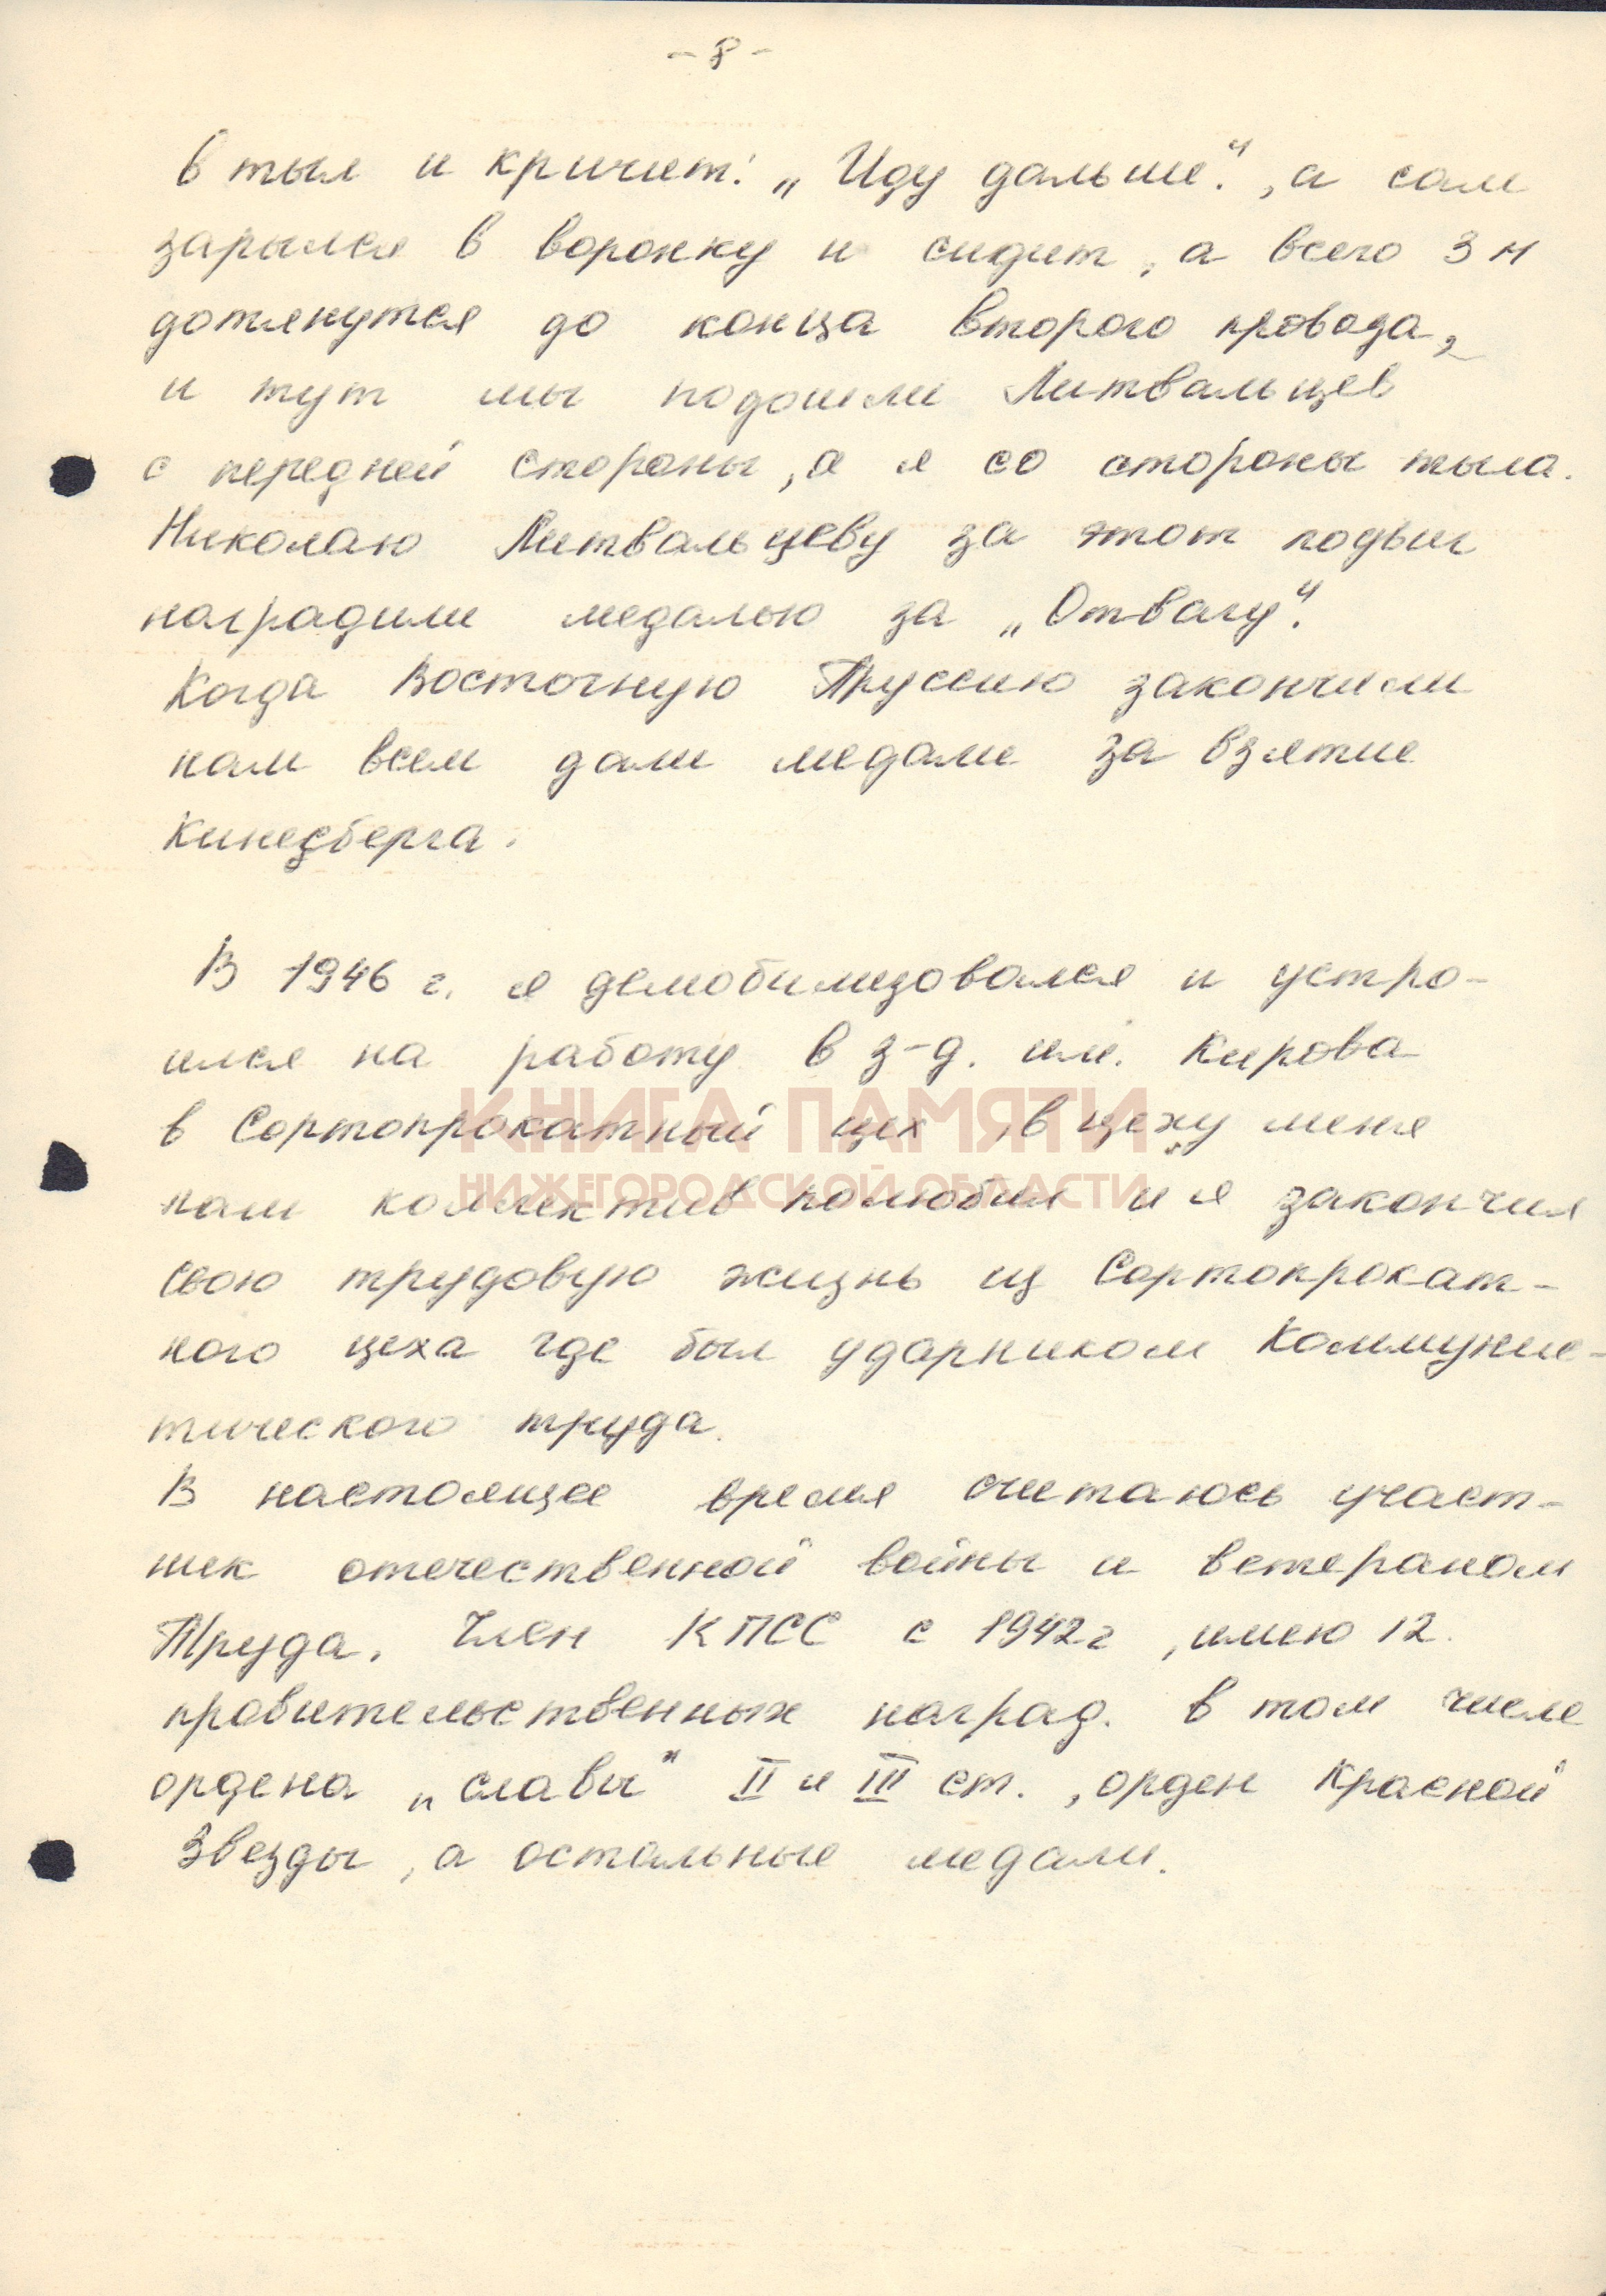 - 8 -
в тыл и кричит: „Иду дальше.", а сам
зарылся в воронку и сидит, а всего 3 м
дотянутся до конца второго провода,
и тут мы подошли Литвальцев
с передней стороны, а я со стороны тыла.
Николаю Литвальцеву за этот подвиг
наградили медалью за „Отвагу".
Когда Восточную Пруссию закончили
нам всем дали медали за взятие
Кинезберга.
В 1946 г. я демобилизовался и устро-
ился на работу в з-д. им. Кирова
в Сортопрокатный цех, в цеху меня
КНИГА ПАМЯТИ
НИЖЕГОРОДСКОЙ ОБЛАСТИ
наш коллектив полюбил и я закончил
свою трудовую жизнь из Сортопрокат-
ного цеха где был ударником Коммунис-
тического труда.
В настоящее время считаюсь участ-
ник отечественной войны и ветераном
Труда. Член КПСС с 1942 г, имею 12.
правительственных наград. в том числе
ордена „славы" II и III ст., орден Красной
Звезды, а остальные медали.